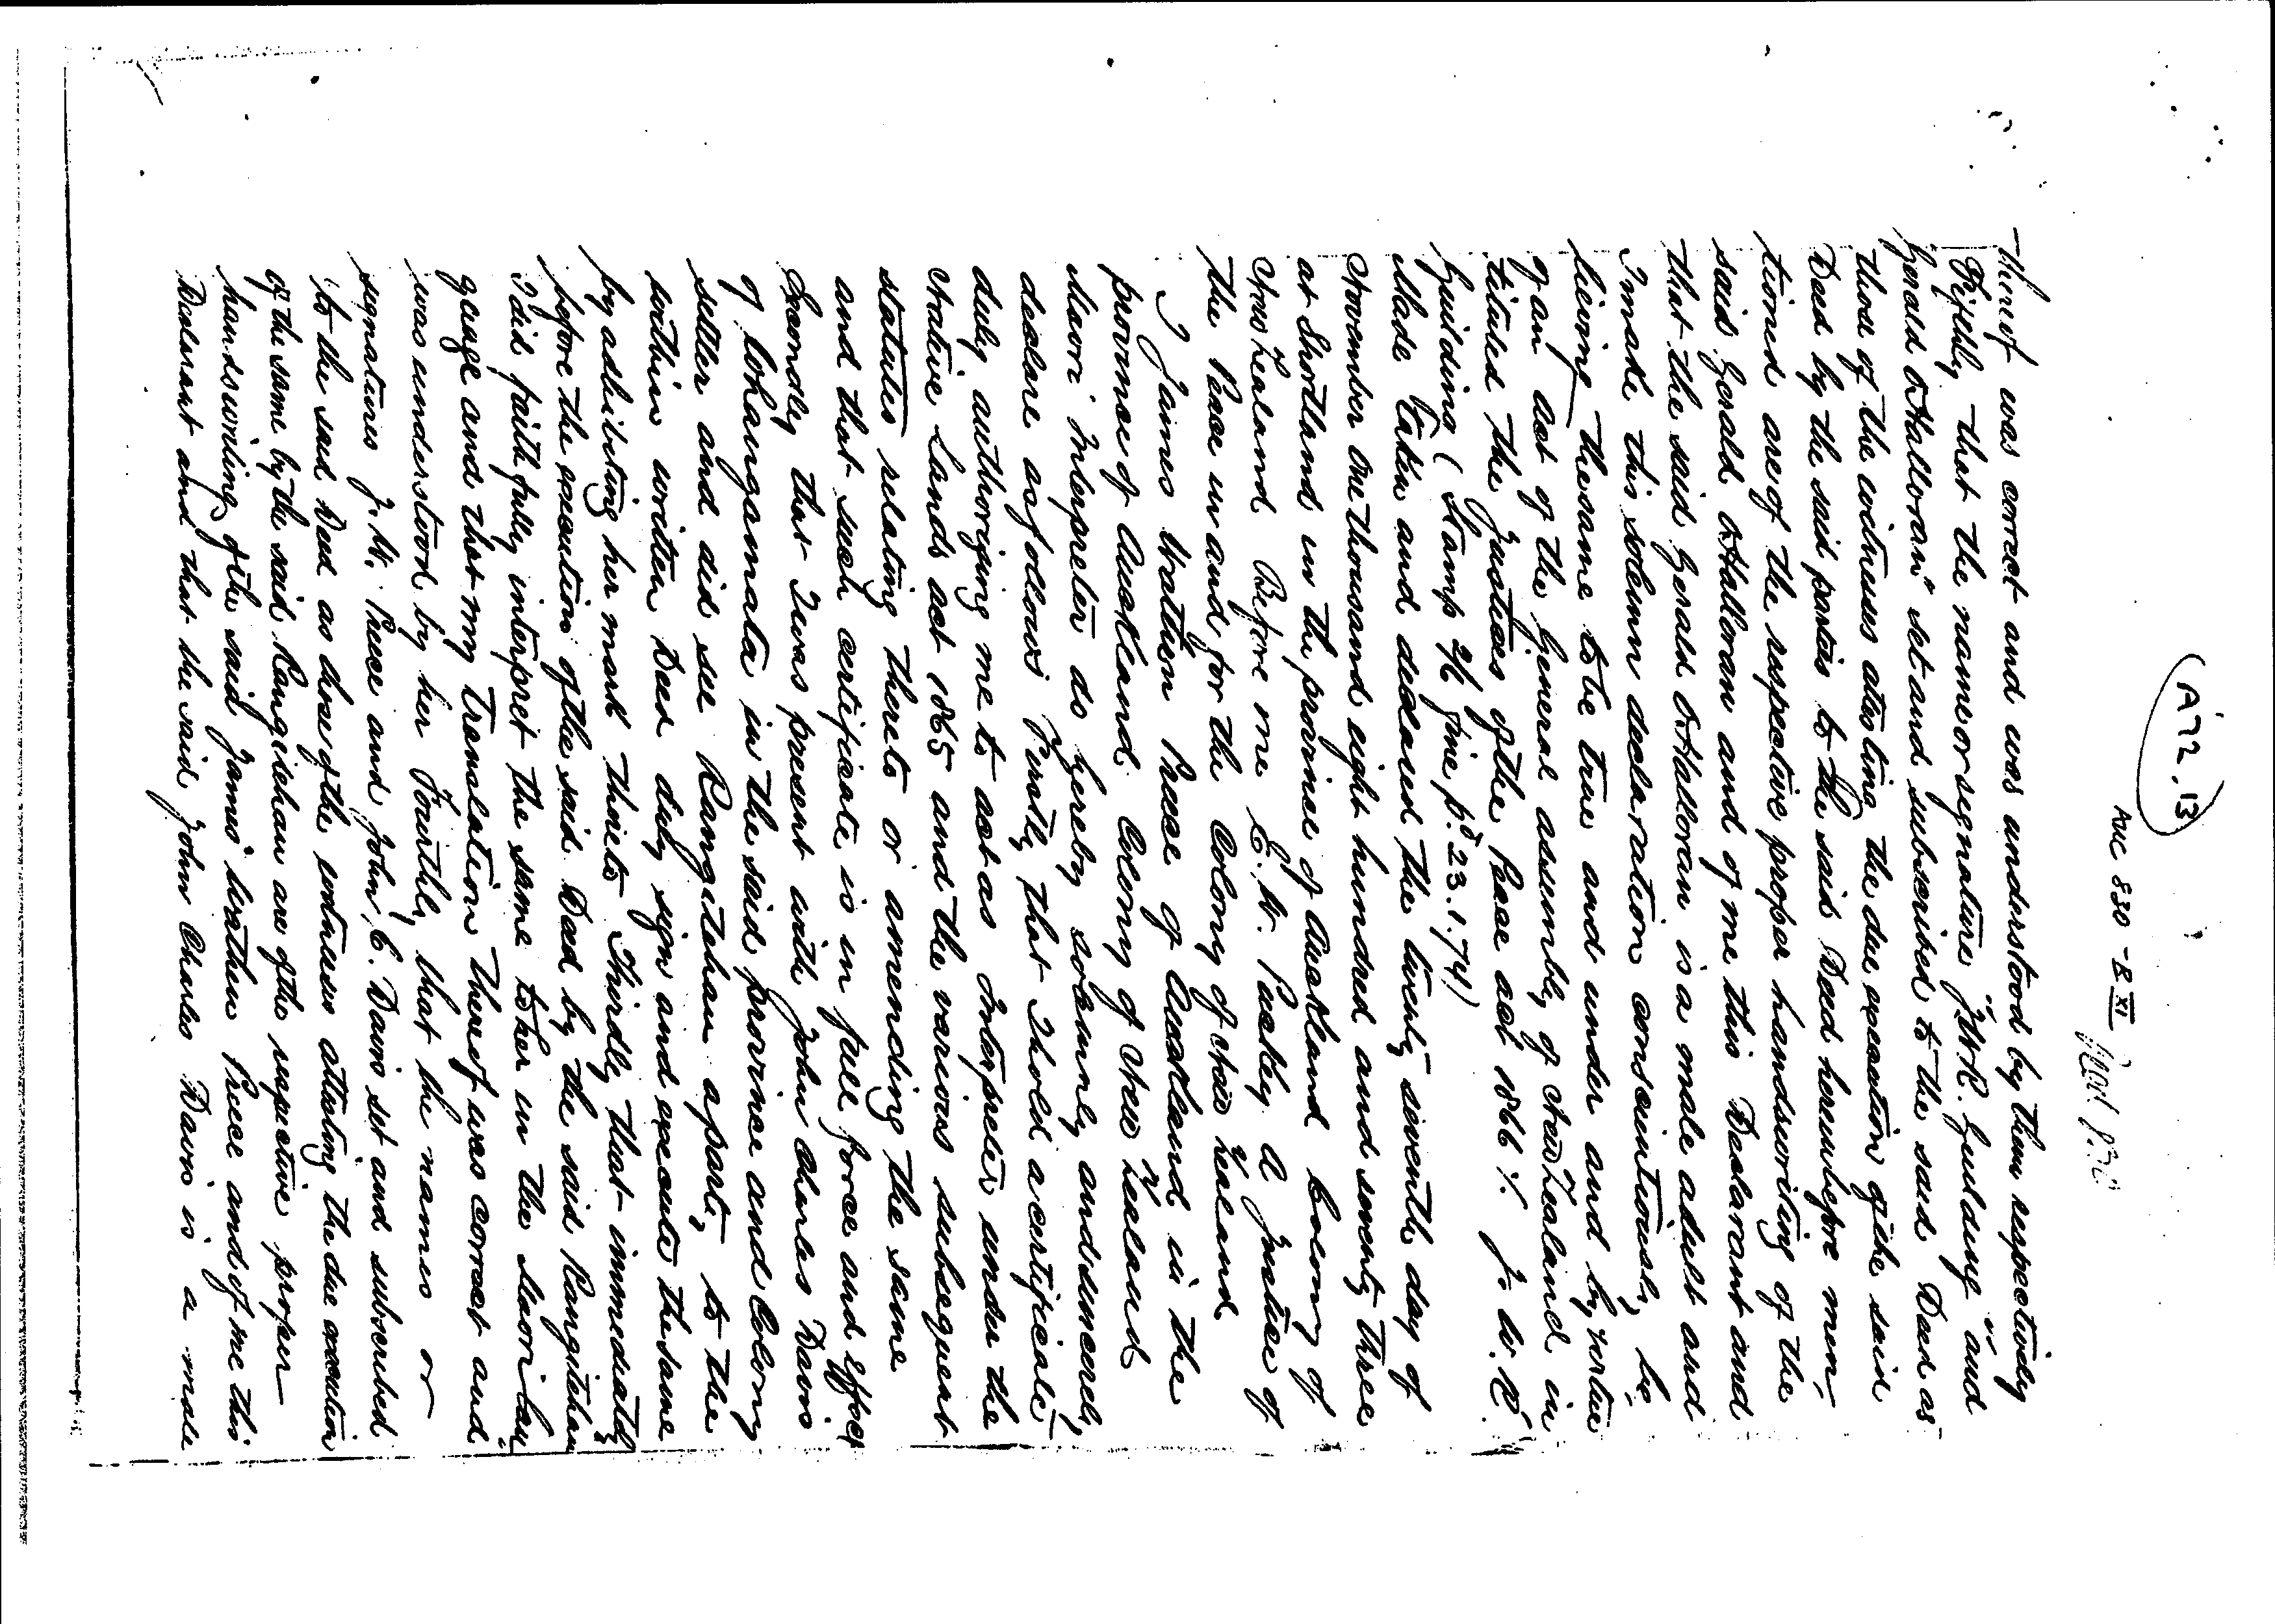 A72.13
AUC 830 - E XI
Thereof was correct and was understood by them respectively
Fifthly that the name or signature "J.W.R. Guilding" and
Gerald O'Halloran" set and subscribed to the said Deed as
those of the witnesses attesting the due execution of the said
Deed by the said parties to the said Deed hereinbefore men-
tioned are of the respective proper handswriting of the
said Gerald O'Halloran and of me this Declarant and
that the said Gerald O'Halloran is a male adult and
I make this solemn declaration conscientiously be
lieving the same to be true and under and by virtue
of an act of the General assembly of New Zealand in
tituled the Justices of the Peace act 1866 J. W. R.
Guilding (Stamp 2/6 fine pd 23.1.74)
Made Taken and declared the twenty seventh day of
November One thousand eight hundred and seventy three
at Shortland in the province of Auckland Colony of
New Zealand Before me C. W. A Justice of
the Peace in and for the Colony of New Zealand
I James Wrathton Preece of Auckland in the
province of Auckland Colony of New Zealand
Maori Interpreter do hereby solemnly and sincerely
declare as follows Firstly that I hold a certificate
duly authorizing me to act as Interpreter under the
Native Lands act 1865 and the various subsequent
statutes relating thereto or amending the same
and that such certificate is in full force and effect
Secondly that I was present with John Charles Davis
of Whangamata in the said province and Colony
settler and did see Rangitehau a party to the
within written Deed duly sign and execute the same
by adhibiting her mark thereto Thirdly that immediately
before the execution of the said Deed by the said Rangitehau
I did faithfully interpret the same to her in the Maori lan
guage and that my Translation thereof was correct and
was understood by her Fourthly that the names or
signatures J. W. Preece and John C. Davis set and subscribed
to the said Deed as those of the witnesses attesting the due execution
of the same by the said Rangitehau are of the respective proper
handswriting of the said James Wrathen Preece and of me this
Declarant and that the said John Charles Davis is a male